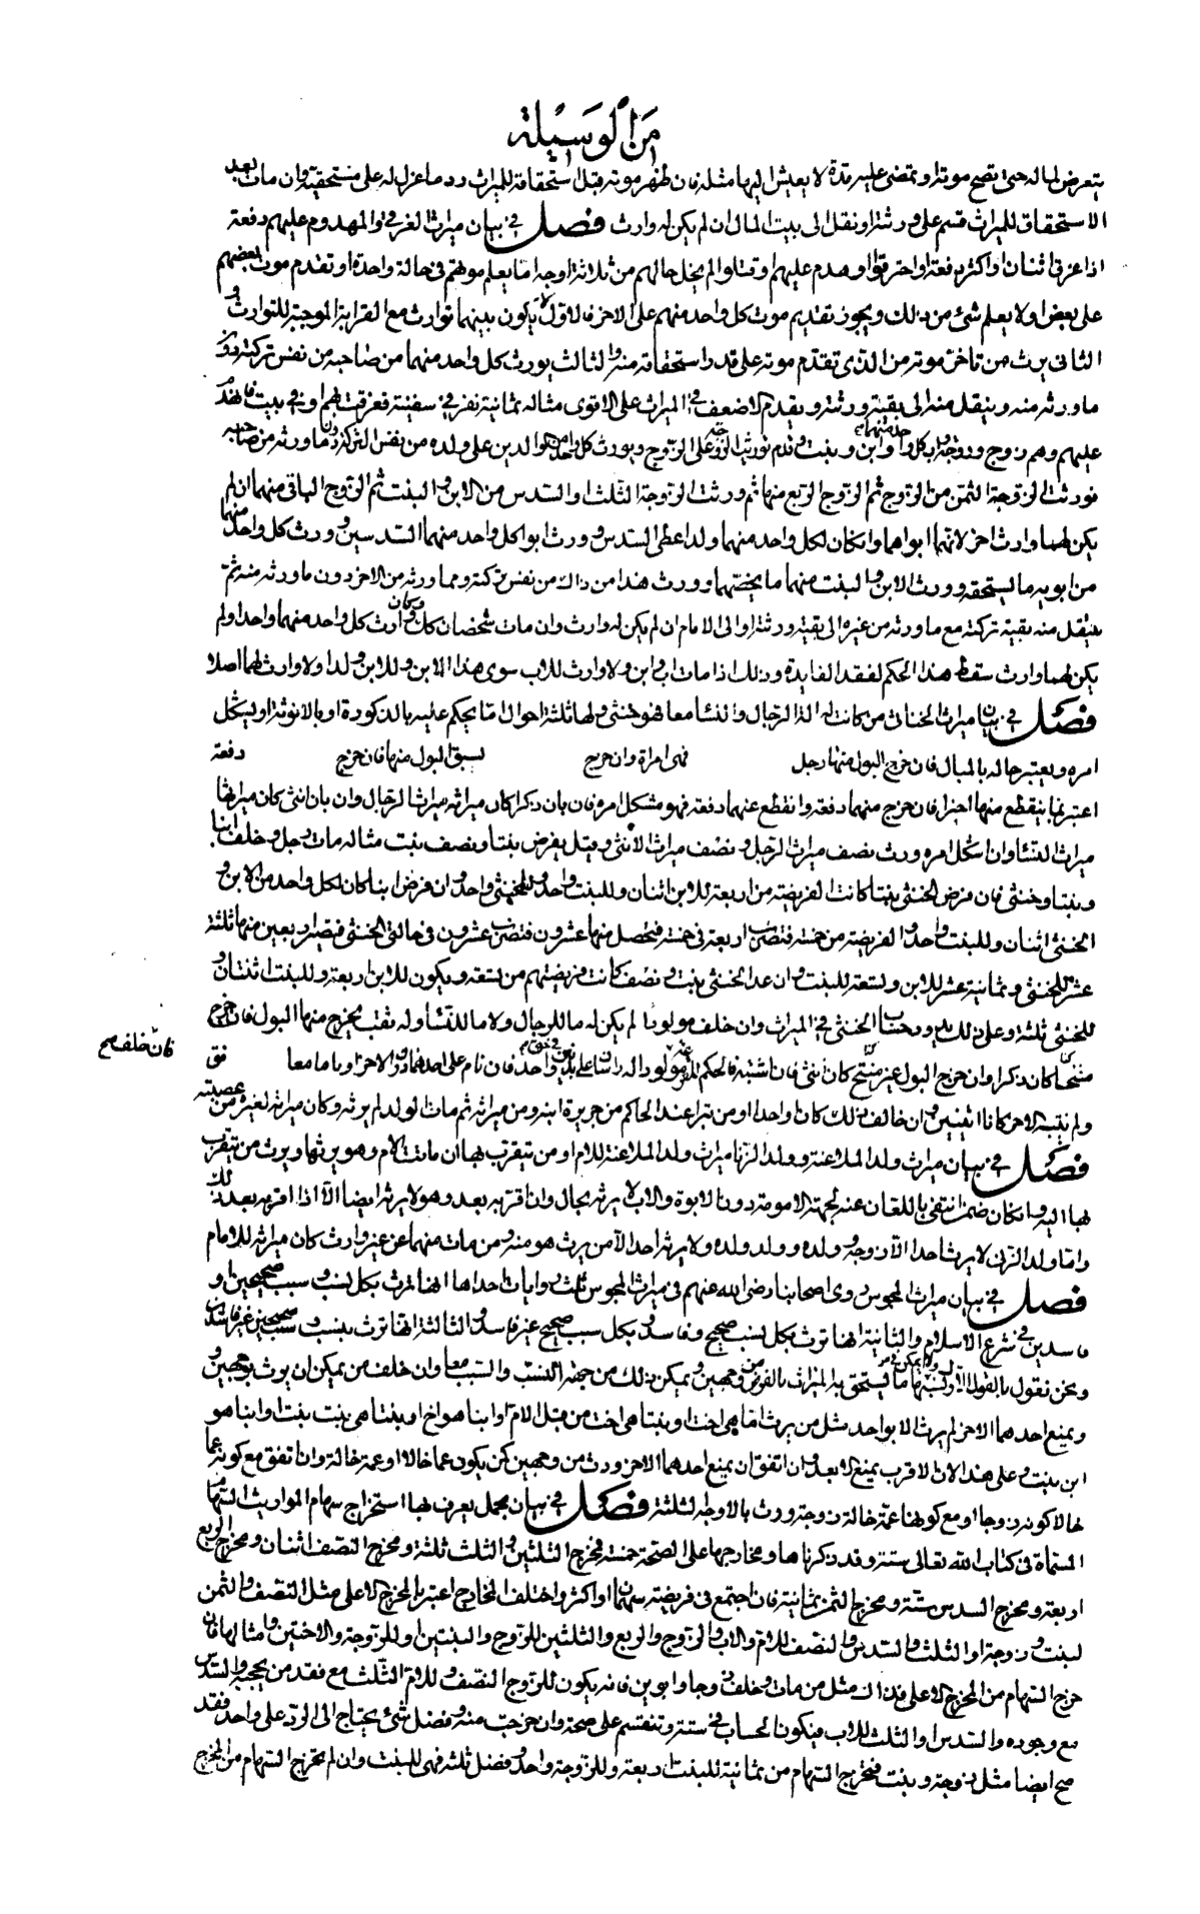 من الوسيلة
يتعرض لماله حتى يصح موته او تمضى عليه مدة لا يعيش اليها مثله فان ظهر موته قبل استحقاقه للميراث رد ما عزل له على مستحقيه وان مات بعد
الاستحقاق للميراث قسم على ورثته او نقل الى بيت المال ان لم يكن له وارث فصل في بيان ميراث الغرقى والمهدوم عليهم دفعة
اذا غرق اثنان او اكثر دفعة او احترقوا او هدم عليهم او قتلوا لم يخل حالهم من ثلاثة اوجه اما يعلم موتهم في حالة واحدة او تقدم موت بعضهم
على بعض او لا يعلم شئ من ذلك ويجوز تقديم موت كل واحد منهم على الاخر فالاول لا يكون بينهما توارث مع القرابة الموجبة للتوارث و
الثانى يرث من تاخر موته من الذى تقدم موته على قدر استحقاقه منه والثالث يورث كل واحد منهما من صاحبه من نفس تركته دون
ما ورثه منه وينقل منه الى بقية ورثته ويقدم الاضعف في الميراث على الاقوى مثاله ثمانية نفر في سفينة فغرقت بهم او في بيت فانهدم
عليهم وهم زوج وزوجة ولكل واحد منهما اب وابن وبنت وقدم توريث الزوجة على الزوج ويورث كل واحد من الوالدين على ولده من نفس التركة دون ما ورثه من صاحبه
نورث الزوجة الثمن من الزوج ثم الزوج الربع منها ثم ورثت الزوجة الثلث او السدس من الابن والبنت ثم الزوج الباقى منهما ان لم
يكن لهما وارث اخر لانهما ابواهما وان كان لكل واحد منهما ولد اعطى السدس وورث ابوا كل واحد منهما السدسين وورث كل واحد منهما
من ابويه ما يستحقه وورث الابن والبنت منهما ما يخصهما وورث هذا من ذاك من نفس تركته ومما ورثه من الاخر دون ما ورثه منه ثم
ينقل منه بقية تركته مع ما ورثه من غيره الى بقية ورثته او الى الامام ان لم يكن له وارث وان مات شخصان وكان كل وارث كل واحد منهما واحدا ولم
يكن لهما وارث سقط هذا الحكم لفقد الفايدة وذلك اذا مات اب وابن ولا وارث للاب سوى هذا الابن وللابن ولد او لا وارث لهما اصلا
فصل في بيان ميراث الخناثى من كانت له الة الرجال والنساء معا فهو خنثى ولها ثلثة احوال اما يحكم عليه بالذكورة او بالانوثة او يشكل
امره ويعتبر حاله بالمبال فان خرج البول منها رجل فهى امراة وان خرج يسبق البول منها فان خرج دفعة
اعتبر بما ينقطع منها اخيرا فان خرج منهما دفعة وانقطع عنهما دفعة فهو مشكل امره فان بان ذكرا كان ميراثه ميراث الرجال وان بان انثى كان ميراثها
ميراث النساء وان اشكل امره ورث نصف ميراث الرجل ونصف ميراث الانثى وقيل يفرض بنتا ونصف بنت مثاله مات رجل وخلف ابنا
وبنتا وخنثى فان فرض الخنثى بنتا كانت الفريضة من اربعة للابن اثنان وللبنت واحد وللخنثى واحد وان فرض ابنا كان لكل واحد من الابن و
الخنثى اثنان وللبنت واحد والفريضة من خمسة فتضرب اربعة في خمسة فيحصل منها عشرون فتضرب عشرون في حالتى الخنثى فتصير اربعين منها ثلثة
عشر للخنثى وثمانية عشر للابن وتسعة للبنت وان عد الخنثى بنتا ونصف كانت فريضتهم من تسعة ويكون للابن اربعة وللبنت اثنتان و
للخنثى ثلثة وعلى ذلك يدور حساب الخنثى في الميراث وان خلف مولودا لم يكن له ما للرجال ولا ما للنساء وله ثقب يخرج منها البول فان خرج
منتحيا كان ذكرا وان خرج البول غير منتح كان انثى فان اشتبه فالحكم للقرعة مولود له راسان على بدن واحد فان نام على احدهما دون الاخر او ناما معا فق
فان خلف صح
ولم ينتبه الاخر كانا اثنين وان خالف ذلك كان واحدا ومن تبرا عند الحاكم من جريرة ابنه ومن ميراثه ثم مات الولد لم يرثه وكان ميراثه لغيره من عصبته
فصل في بيان ميراث ولد الملاعنة وولد الزنا ميراث ولد الملاعنة للام او من يتقرب بها ان ماتت الام وهو يرثها ويرث من يتقرب
بها اليه وان كان ضمن انتفى باللعان عند لجهة الامومة دون الابوة والاب لا يرثه بحال وان اقر به بعد وهو لا يرثه ايضا الا اذا اقر به بعد ذلك
واما ولد الزنى لا يرث احدا الا زوجه وولده وولد ولده ولا يرثه احد الا من يرث هو منه ومن مات منهما عن غير وارث كان ميراثه للامام
فصل في بيان ميراث المجوس روى اصحابنا رضى الله عنهم في ميراث المجوس ثلث روايات احداها انها تورث بكل نسب وسبب صحيحين او
فاسدين في شرع الاسلام والثانية انها تورث بكل نسب صحيح وفاسد وبكل سبب صحيح غير فاسد والثالثة انها تورث بنسب وسبب صحيحين غير فاسدين
ونحن نقول بالقول الاول وربما يستحق الميراث بالفرض من وجهين ويمكن ذلك من جهة النسب والسبب معا وان خلف من يمكن ان يورث بوجهين و
ويمنع احدهما الاخر لم يرث الا بواحد مثل من يرث اما هى اخت او بنتا هى اخت من قبل الام او ابنا هو اخ او بنتا هى بنت بنت او ابنا هو
ابن بنت وعلى هذا لان الاقرب يمنع الابعد وان اتفق ان يمنع احدهما الاخر ورث من وجهين كمن يكون عما خالا او عمة خالة وان اتفق مع كونه عما
خالا كونه زوجا او مع كونها عمة خالة زوجة ورث بالاوجه الثلثة فصل في بيان مجمل يعرف بها استخراج سهام المواريث السهام
المسماة في كتاب الله تعالى ستة وقد ذكرناها ومخارجها على الصحة خمسة فمخرج الثلثين والثلث ثلثة ومخرج النصف اثنان ومخرج الربع
اربعة ومخرج السدس ستة ومخرج الثمن ثمانية فان اجتمع في فريضة سهمان او اكثر واختلف المخارج اعتبر بالمخرج الاعلى مثل النصف والثمن
لبنت وزوجة او الثلث والسدس والنصف للام والاب والزوج والربع والثلثين للزوج والبنتين او للزوجة والاختين وامثالها فان
خرج السهام من المخرج الاعلى فذاك مثل من مات وخلف زوجا وابوين فانه يكون للزوج النصف وللام الثلث مع فقد من يحجبها والسدس
مع وجوده والسدس او الثلث للاب فيكون الحساب في ستة وتنقسم على صحة وان خرجت منه وفضل شئ يحتاج الى الرد على واحد فقد
صح ايضا مثل زوجة وبنت فتخرج السهام من ثمانية للبنت اربعة وللزوجة واحد وفضل ثلثة فهى للبنت وان لم تخرج السهام من المخرج